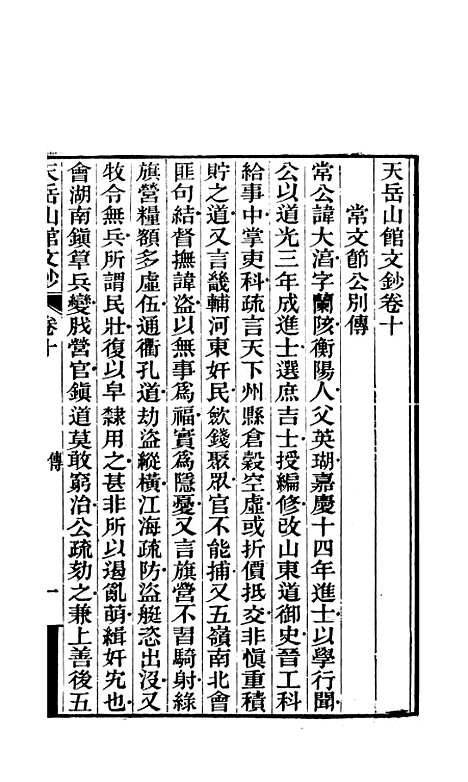 天岳山館文鈔卷十
常文節公別傳
常公諱大淳字蘭陔衡陽人父英瑚嘉慶十四年進士以學行聞
公以道光三年成進士選庶吉士授編修改山東道御史晉工科
給事中掌吏科疏言天下州縣倉穀空虛或折價抵交非愼重積
貯之道又言畿輔河東奸民斂錢聚眾官不能捕又五嶺南北會
匪句結督撫諱盜以無事爲福實爲隱憂又言旗營不習騎射綠
旗營糧額多虛伍通衢孔道劫盜縱橫江海疏防盜艇恣出沒又
牧令無兵所謂民壯復以皁隸用之甚非所以遏亂萌緝奸宄也
會湖南鎭筸兵變戕營官鎭道莫敢窮治公疏劾之兼上善後五
天岳山館文鈔 卷十 傳 一